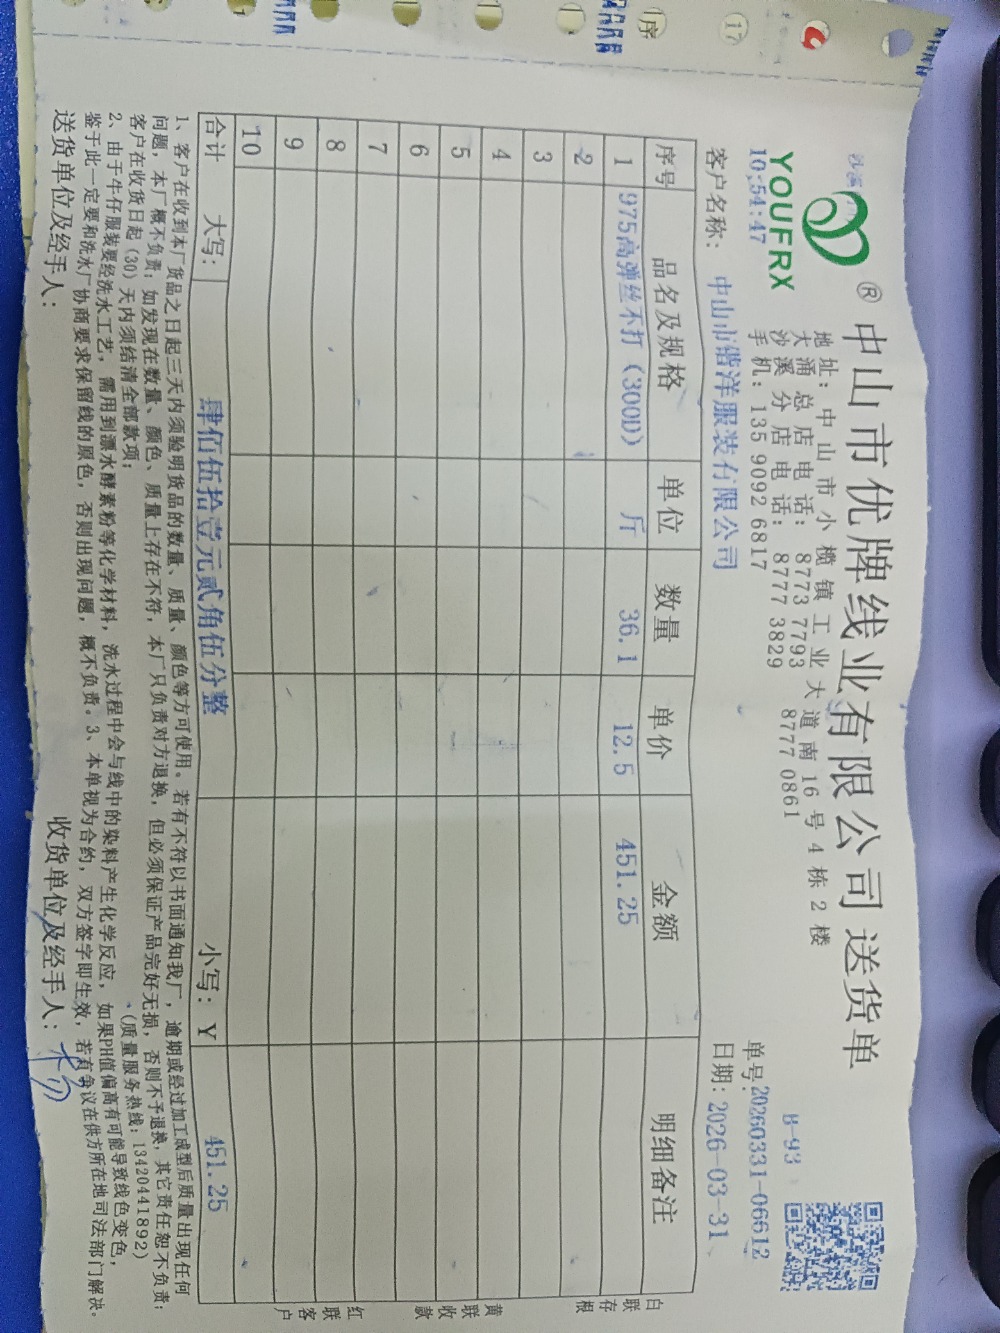 中山市优牌线业有限公司送货单
®
YOUFRX
10:54:47
地址：中山市小榄镇工业大道南16号4栋2楼
大涌总店电话：8773 7793 8777 0861
沙溪分店电话：8777 3829
手机：135 9092 6817
B-93
单号:20260331-06612
客户名称：中山市谐洋服装有限公司
日期：2026-03-31
序号 品名及规格 单位 数量 单价 金额 明细备注
1 975高弹丝不打（300D） 斤 36.1 12.5 451.25
2
3
4
5
6
7
8
9
10
合计 大写： 肆佰伍拾壹元贰角伍分整 小写：￥ 451.25
白联存根
黄联收款
红联客户
1、客户在收到本厂货品之日起三天内须验明货品的数量、质量、颜色等方可使用。若有不符以书面通知我厂，逾期或经过加工成型后质量出现任何
问题，本厂概不负责；如发现在数量、颜色、质量上存在不符，本厂只负责对方退换，但必须保证产品完好无损，否则不予退换，其它责任恕不负责；
客户在收货日起（30）天内须结清全部款项； (质量服务热线：13420441892)
2、由于牛仔服装要经洗水工艺，需用到漂水酵素粉等化学材料，洗水过程中会与线中的染料产生化学反应，如果PH值偏高有可能导致线色变色，
鉴于此一定要和洗水厂协商要求保留线的原色，否则出现问题，概不负责。3、本单视为合约，双方签字即生效，若有争议在供方所在地司法部门解决。
送货单位及经手人： 收货单位及经手人：
序
17